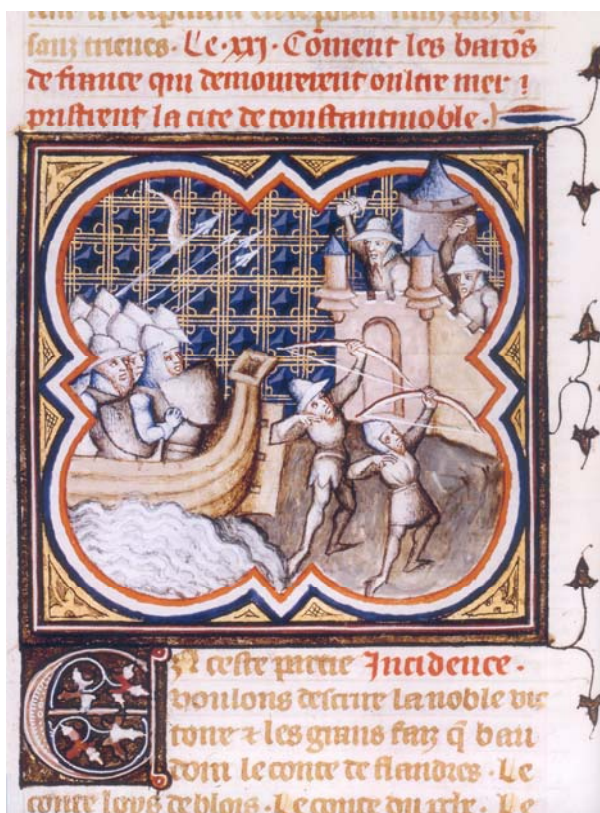 sanz trieues. Le .xxj. Coment les barōs
de france qui demourerent oultre mer
pristrent la cite de constantinoble.
En ceste partie Incidence.
voulons descrire la noble vic
toire ⁊ les grans faiz q̄ bau
doin le conte de flandres. Le
conte loys de blois. Le conte du. Le